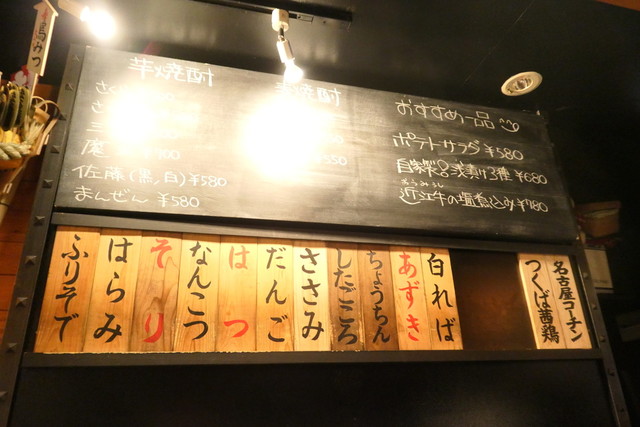 馬みつ
芋焼酎
さ
さ
三
魔 700
佐藤(黒,白)¥580
まんぜん ¥580
焼酎
550
おすすめ一品
ポテトサラダ ¥580
自家製浅漬け3種 ¥680
おうみうし
近江牛の塩煮込み ¥780
白ればー
あずき
ちょうちん
したごころ
ささみ
だんご
はつ
なんこつ
そり
はらみ
ふりそで
名古屋コーチン
つくば茜鶏